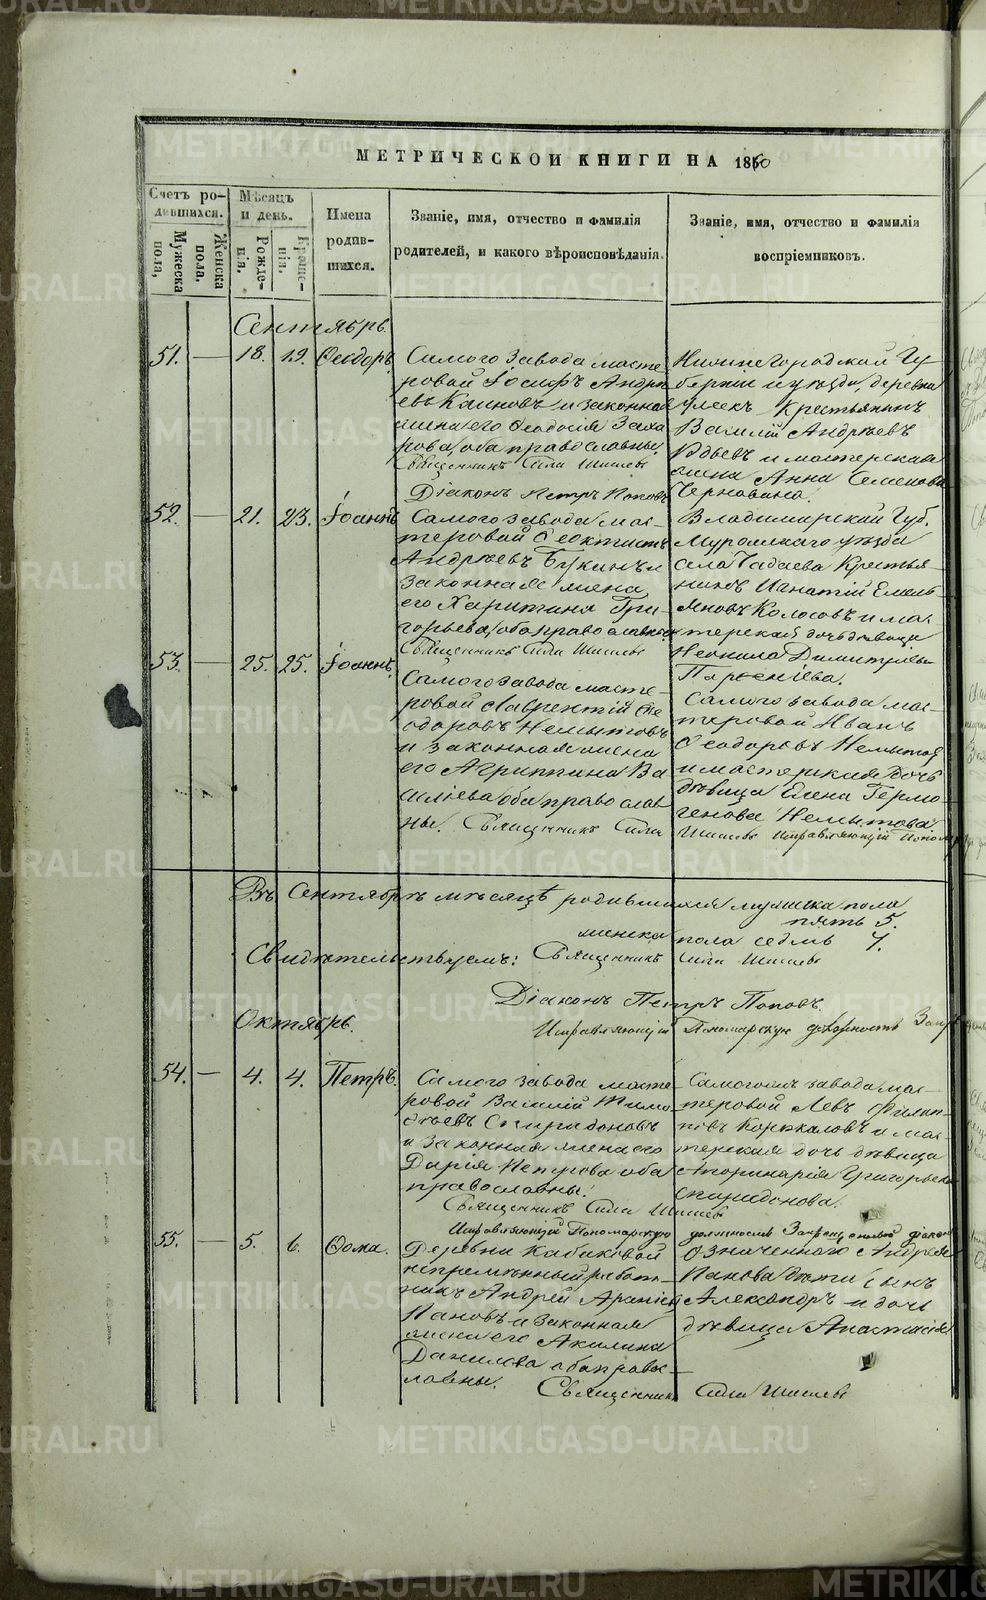 МЕТРИЧЕСКОЙ КНИГИ НА 1860
Счетъ ро-
дившихся.
Мужеска
пола,
Женска
пола.
Мѣсяцъ
и день.
Рожде-
нія.
Креще-
нія.
Имена
родив-
шихся.
Званіе, имя, отчество и фамилія
родителей, и какого вѣроисповѣданія.
Званіе, имя, отчество и фамилія
воспріемниковъ.
Сентябрь.
51. — 18. 19. Ѳеодоръ.
Самого завода масте-
ровой Іосифъ Андрѣ-
евъ и законная
жена его Ѳеодосія Заха-
рова, оба православны.
Священникъ Сила
Діаконъ Петръ Поповъ
Нижнегородской Гу-
берніи и уѣзда, деревни
крестьянинъ
Василій Андрѣевъ
и мастерская
жена Анна Семенова
52. — 21. 23. Іоаннъ
Самого завода мас-
теровой Ѳеоктистъ
Андрѣевъ Букинъ и
законная жена
его Харитина Гри-
горьева, оба православны
Священникъ Сила
Владимирской Губ.
Муромскаго уѣзда
села Чадаева Кресть-
янинъ Игнатій Емель-
яновъ Колосовъ и мас-
терская дочь дѣвица
Неонила Димитріева
53. — 25. 25. Іоаннъ.
Самого завода масте-
ровой Лаврентій Ѳе-
одоровъ Немытовъ
и законная жена
его Агриппина Ва-
силіева оба православ-
ны. Священникъ Сила
Самого завода мас-
теровой Иванъ
Ѳеодоровъ Немытов
и мастерская дочь
дѣвица Елена Гермо-
генова Немытова
Исправляющій
Въ Сентябрѣ мѣсяцѣ родившихся мужска пола
пять 5.
женска пола седмь 7.
Свидѣтельствуемъ: Священникъ Сила
Діаконъ Петръ Поповъ.
Исправляющій Пономарскую должность
Октябрь.
54. — 4. 4. Петръ.
Самого завода масте-
ровой Василій Тимо-
ѳеевъ Спиридоновъ
и законная жена его
Дарія Петрова оба
православны.
Священникъ Сила
Исправляющій Пономарскую должность
Самогожъ завода мас-
теровой Левъ Филип-
повъ и мас-
терская дочь дѣвица
Григорьева
Спиридонова.
55. — 5. 6. Ѳома.
Деревни
непремѣнный работ-
никъ Андрей
Пановъ и законная
жена его Акилина
Данилева оба правос-
лавны.
Священникъ Сила
означеннаго Андрея
Панова дѣти сынъ
Александръ и дочь
дѣвица Анастасія
METRIKI.GASO-URAL.RU